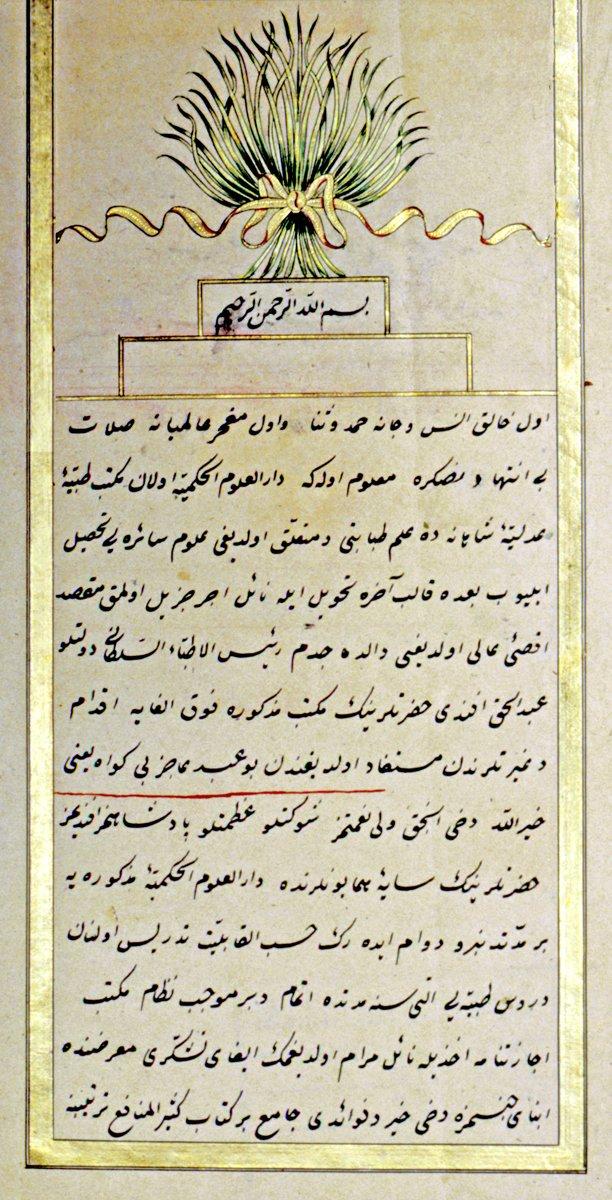 بسم الله الرحمن الرحيم
اول خالق انس و جانه حمد و ثنا و اول مفخر عالميانه صلات
بى انتها دن صكره معلوم اوله كه دار العلوم الحكميۀ اولان مكتب طبيۀ
عدليۀ شاهانه ده علم طبابتى و متعلق اولديغى علوم سائره يى تحصيل
ايليوب بعده قالب آخره تحويل ايله نائل اجر جزيل اولمق مقصد
اقصئ عالى اولديغى والده جدم رئيس الاطباء السلطانى دولتلو
عبد الحق افندى حضرتلرينك مكتب مذكوره فوق الغايه اقدام
و غيرتلرندن مستفاد اولديغندن بو عبد عاجز بى كواه يعنى
خير الله دخى الحق ولى نعمتمز شوكتلو عظمتلو پادشاهمز افنديمز
حضرتلرينك سايۀ همايونلرنده دار العلوم الحكميۀ مذكوره يه
بر مدتدنبرو دوام ايده رك حسب القابليت تدريس اولنان
دروس طبيه يى التى سنه مدتده اتمام و بر موجب نظام مكتب
اجازتنامه اخذيله نائل مرام اولديغمك ايفاى تشكرى معرضنده
ابناى جنسمزه دخى خير و فوائدى جامع بر كتاب كثير المنافع ترتيبنه